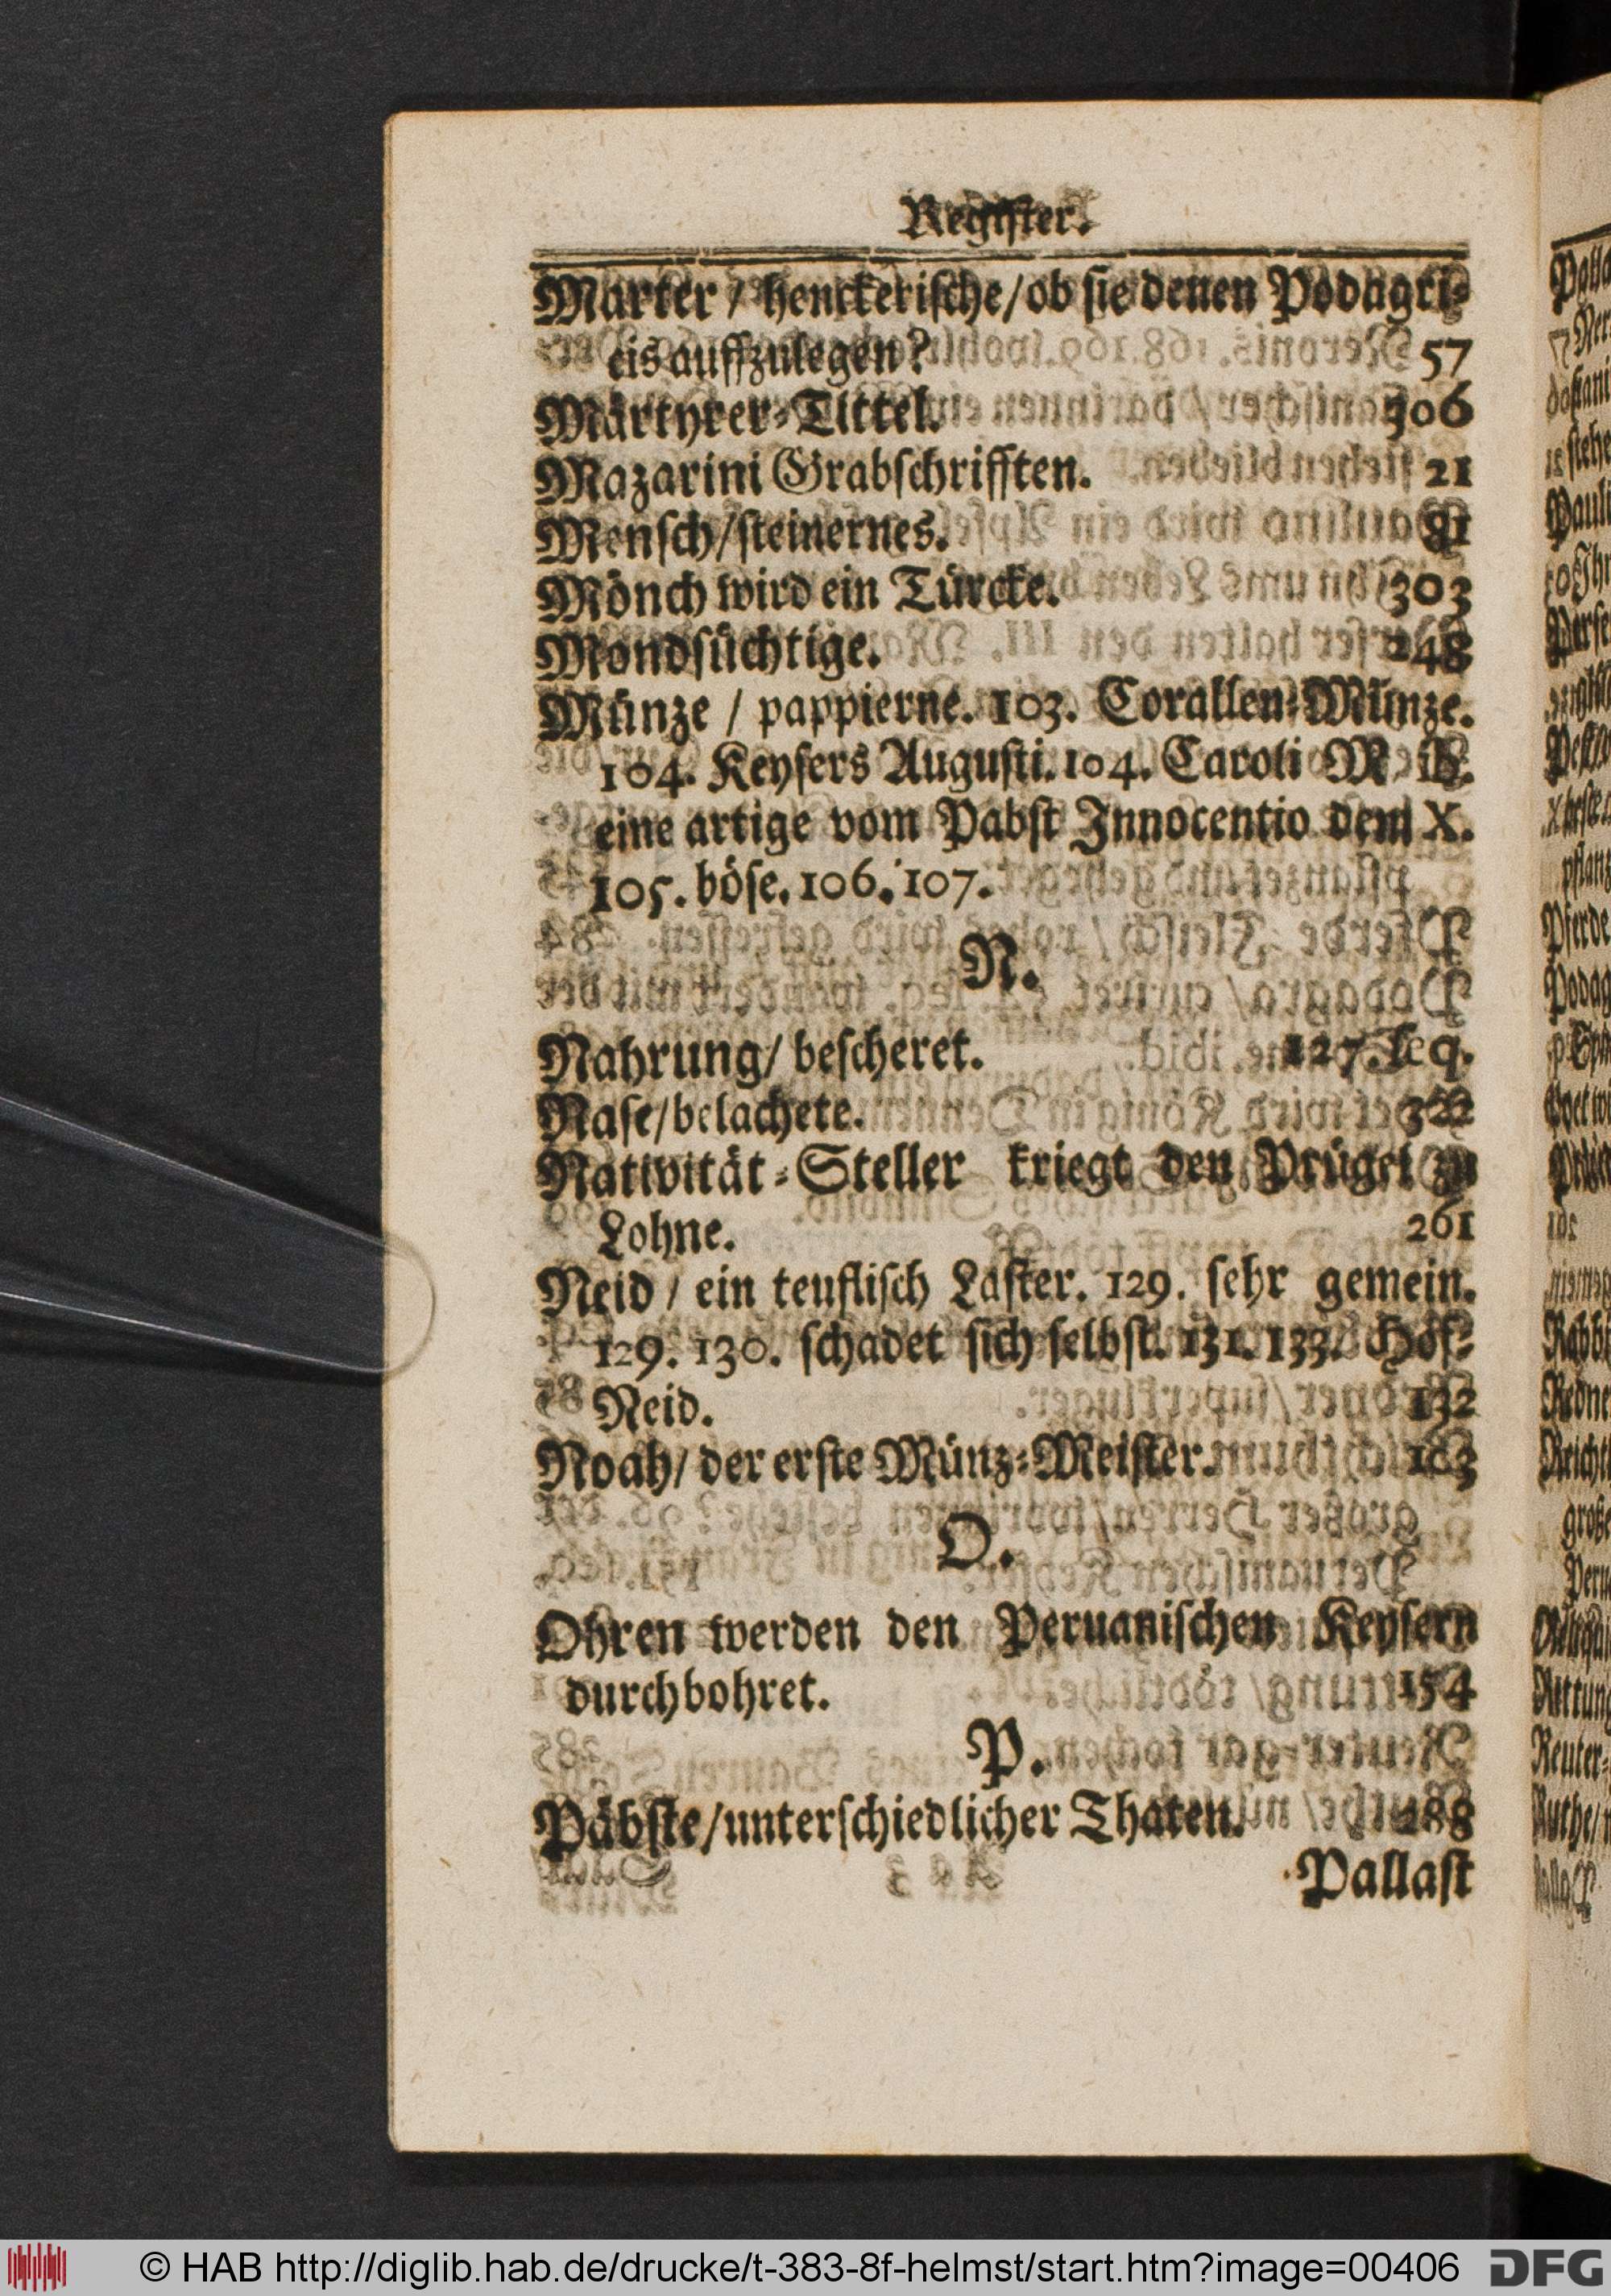 Register.
Marter / henckerische / ob sie denen Podagri-
cis auffzulegen? 57
Märtyrer-Tittel. 306
Mazarini Grabschrifften. 21
Mensch / steinernes. 81
Mönch wird ein Türcke. 303
Mondsüchtige. 248
Münze / pappierne. 103. Corallen-Münze.
104. Keysers Augusti. 104. Caroli M. ib.
eine artige vom Pabst Innocentio dem X.
105. böse. 106. 107.
N.
Nahrung / bescheret. 127. seq.
Nase / belachete. 322
Nativität-Steller kriegt den Prügel zu
Lohne. 261
Neid / ein teuflisch Laster. 129. sehr gemein.
129. 130. schadet sich selbst. 131. 133. Hof-
Neid. 132
Noah / der erste Münz-Meister. 103
O.
Ohren werden den Peruanischen Keysern
durchbohret. 154
P.
Päbste / unterschiedlicher Thaten. 288
Pallast
© HAB http://diglib.hab.de/drucke/t-383-8f-helmst/start.htm?image=00406
DFG